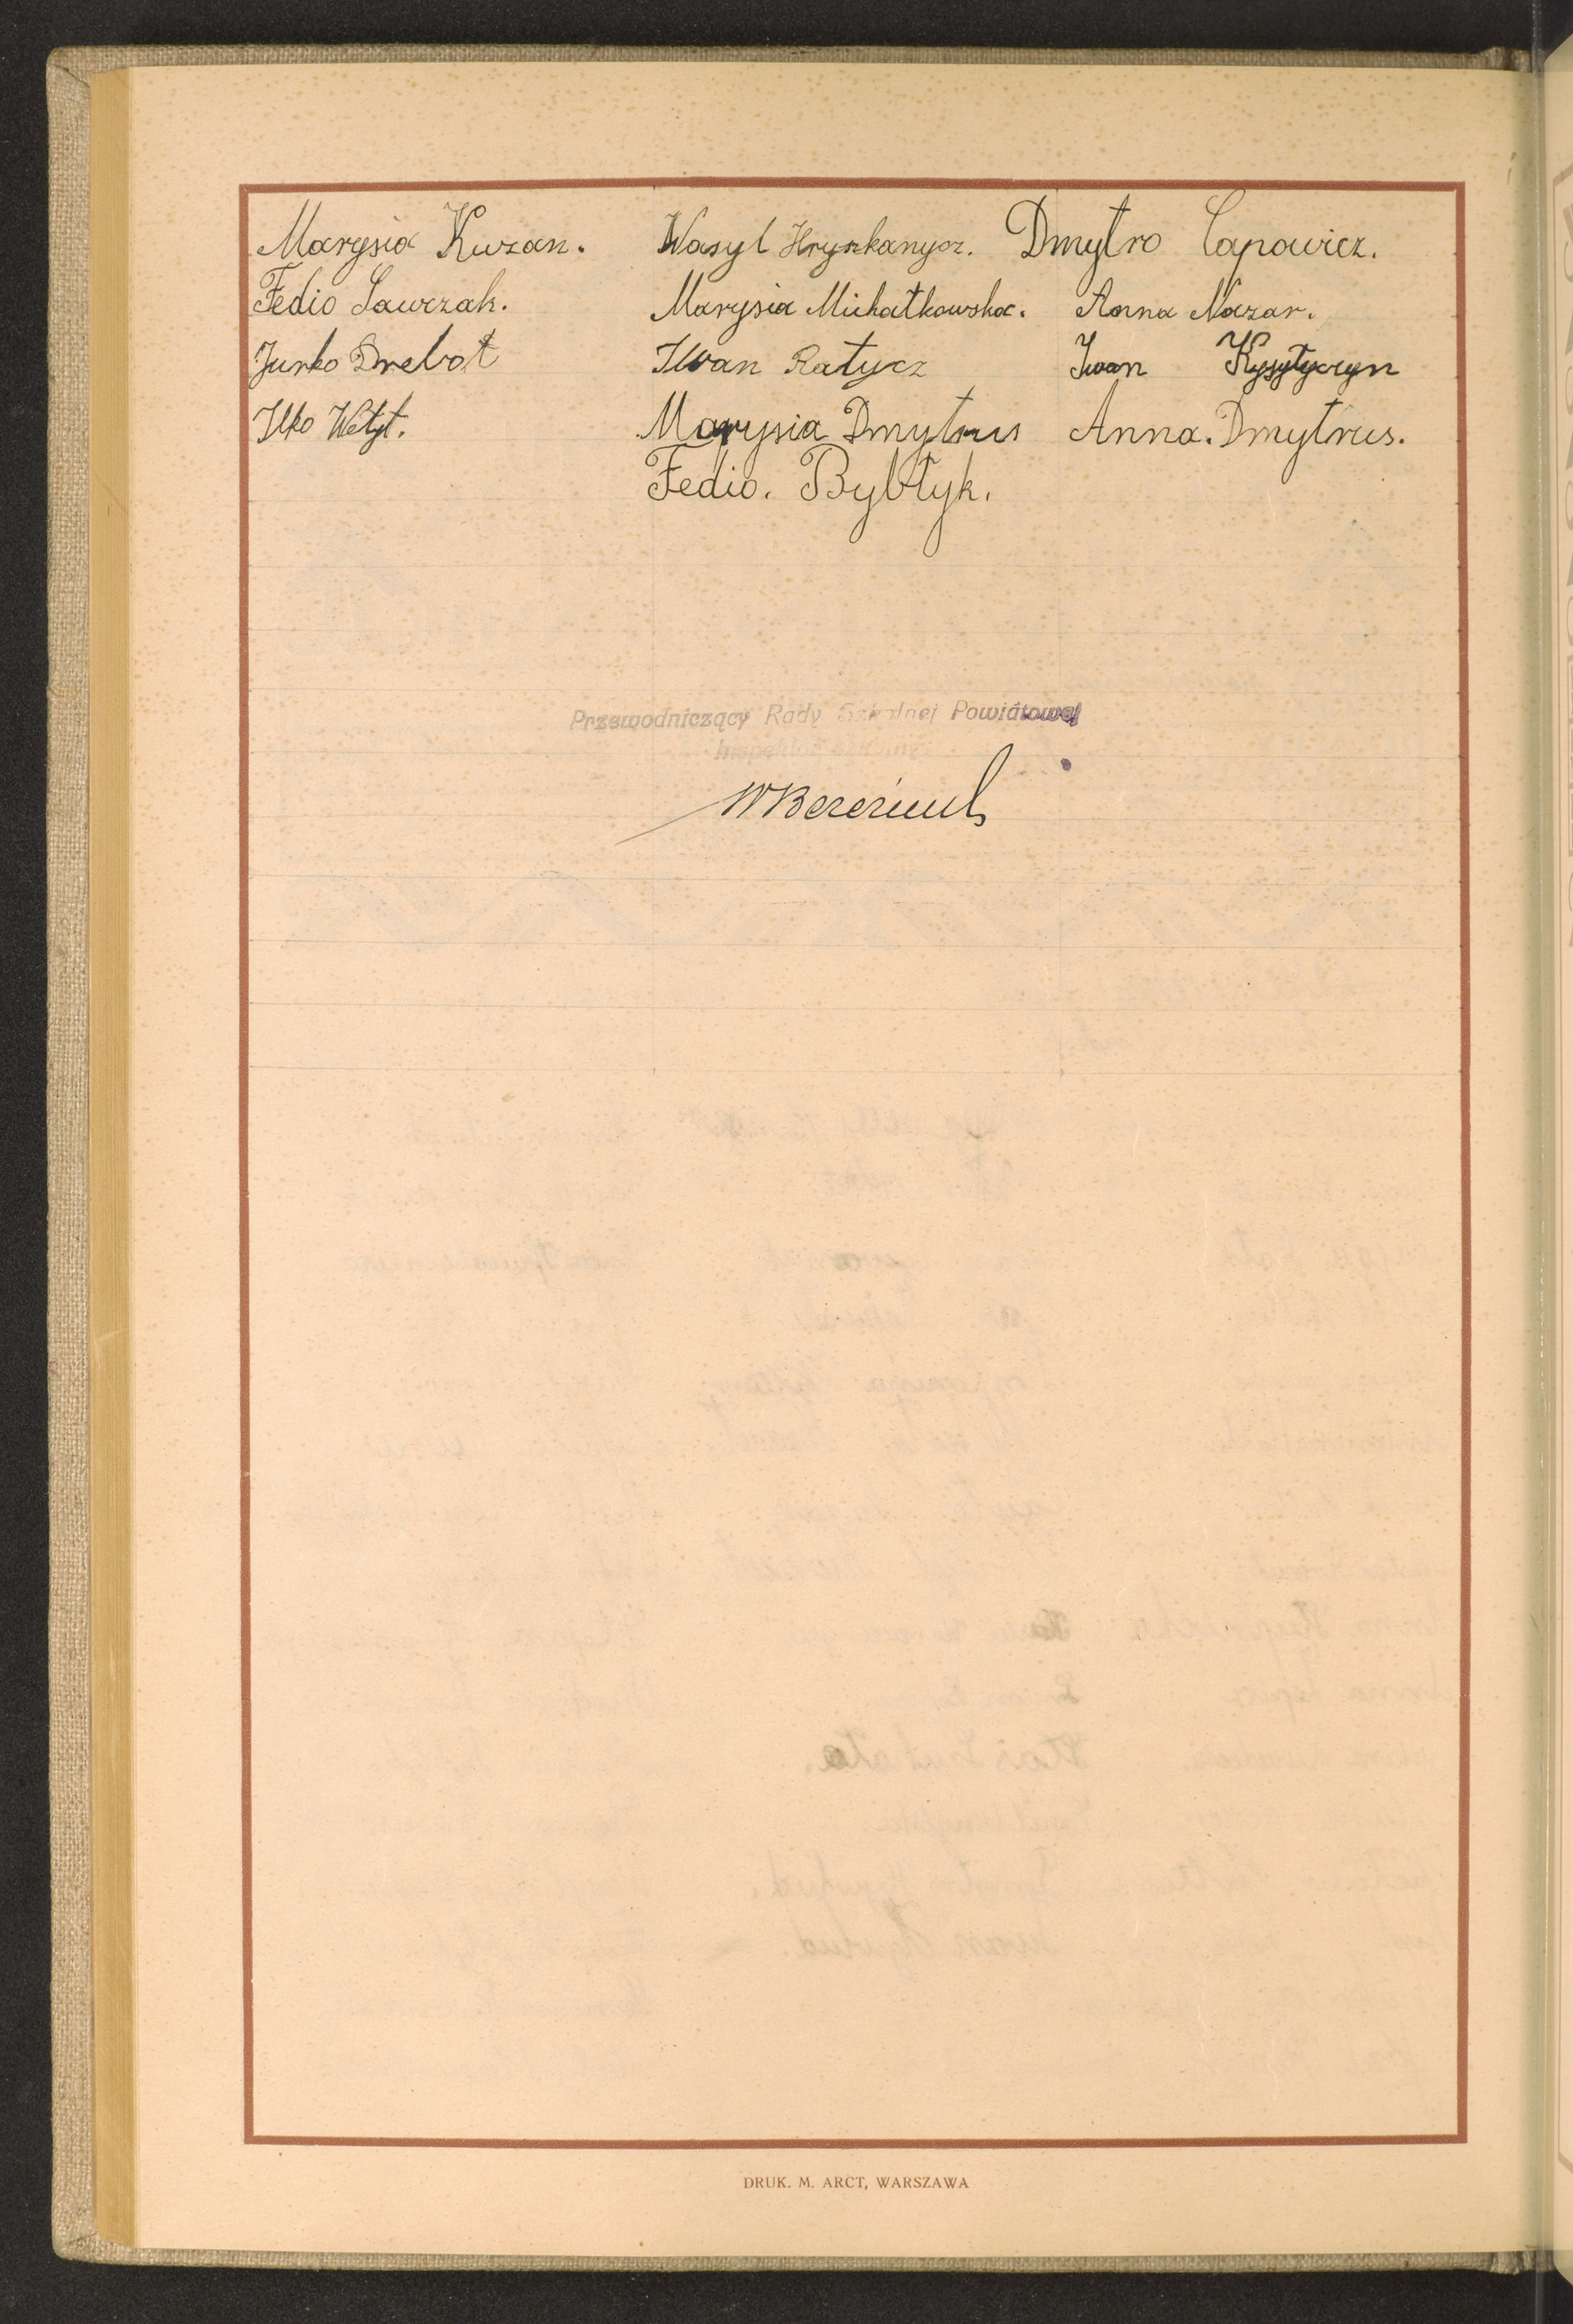 Marysia Kuzan. Wasyl Hryszkanycz. Dmytro Capowicz.
Fedio Sawczak. Marysia Michałkowska. Anna Nazar.
Jurko Drebot Iwan Ratycz Iwan
Ilko Wełyt. Marysia Dmytrus Anna. Dmytrus.
Fedio. Bybłyk.
Przewodniczący Rady Szkolnej Powiatowej
Inspektor Szkolny
DRUK. M. ARCT, WARSZAWA